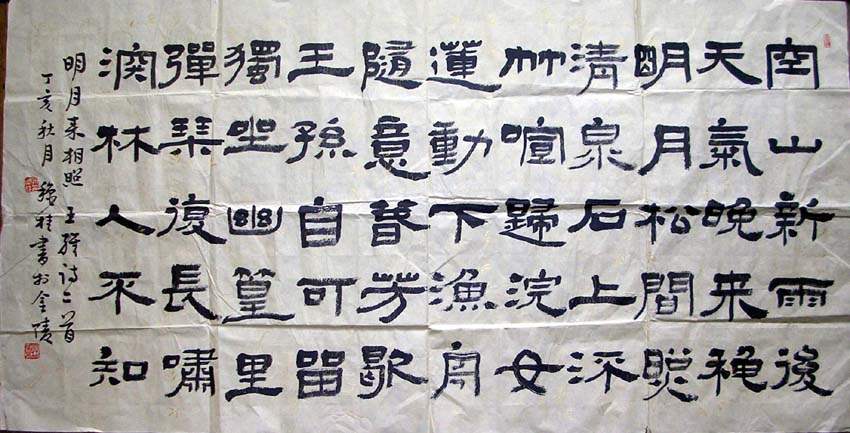 空山新雨後
天氣晚来秋
明月松間照
清泉石上流
竹喧歸浣女
蓮動下漁舟
隨意春芳歇
王孫自可留
獨坐幽篁里
彈琴復長嘯
深林人不知
明月来相照 王維詩二首
丁亥秋月 書於金陵